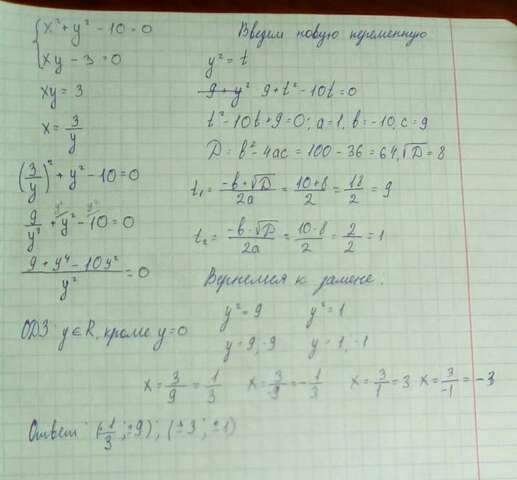 x² + y² - 10 = 0
xy - 3 = 0
xy = 3
x = 3/y
(3/y)² + y² - 10 = 0
9/y² + y² - 10 = 0
(9 + y⁴ - 10y²)/y² = 0
ОДЗ: y ∈ R, кроме y = 0
Введем новую переменную
y² = t
9 + y² 9 + t² - 10t = 0
t² - 10t + 9 = 0; a = 1, b = -10, c = 9
D = b² - 4ac = 100 - 36 = 64, √D = 8
t₁ = (-b + √D)/2a = (10 + 8)/2 = 18/2 = 9
t₂ = (-b - √D)/2a = (10 - 8)/2 = 2/2 = 1
Вернемся к замене.
y² = 9 y² = 1
y = 9, -9 y = 1, -1
x = 3/9 = 1/3 x = 3/-9 = -1/3 x = 3/1 = 3 x = 3/-1 = -3
Ответ: (±1/3; ±9); (±3; ±1)